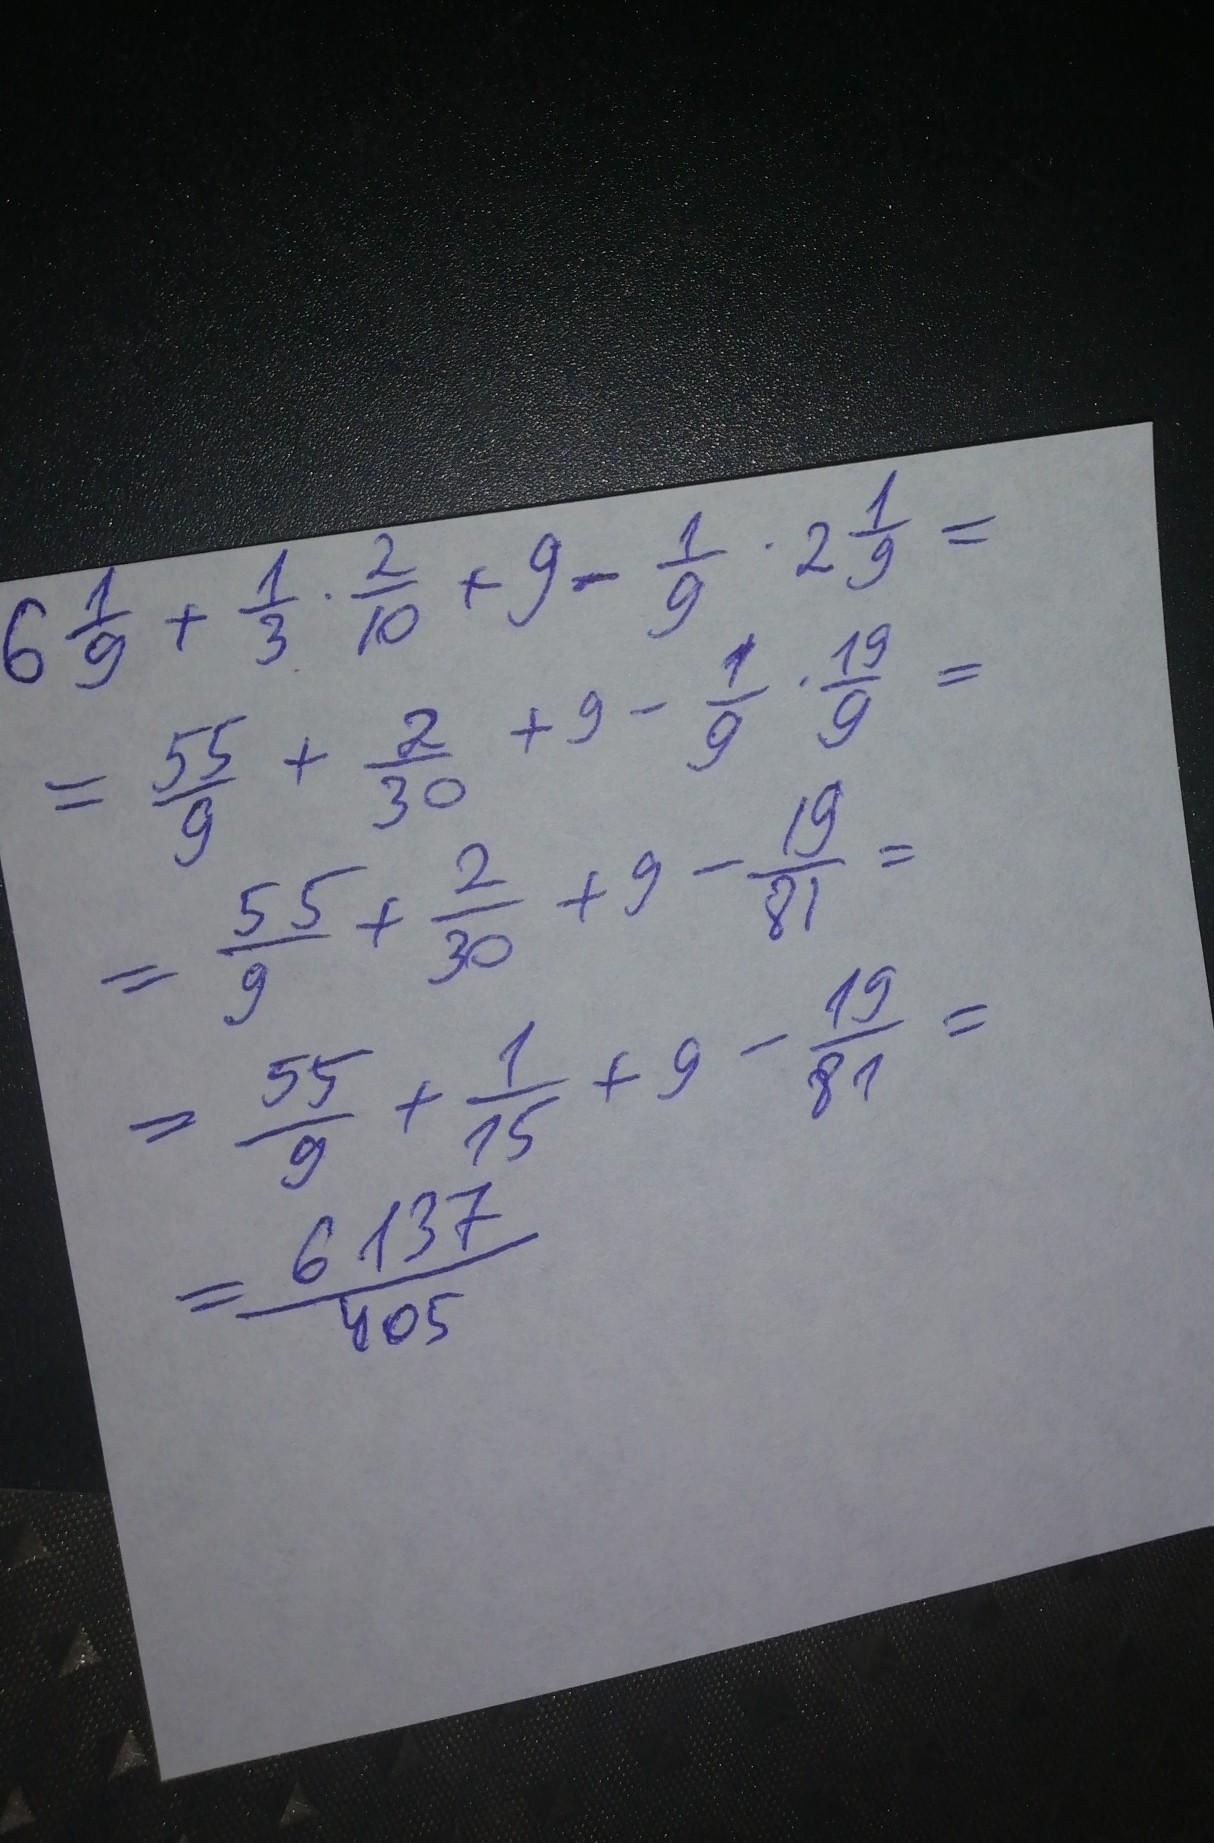 6 1/9 + 1/3 · 2/10 + 9 - 1/9 · 2 1/9 =
= 55/9 + 2/30 + 9 - 1/9 · 19/9 =
= 55/9 + 2/30 + 9 - 19/81 =
= 55/9 + 1/15 + 9 - 19/81 =
= 6137/405